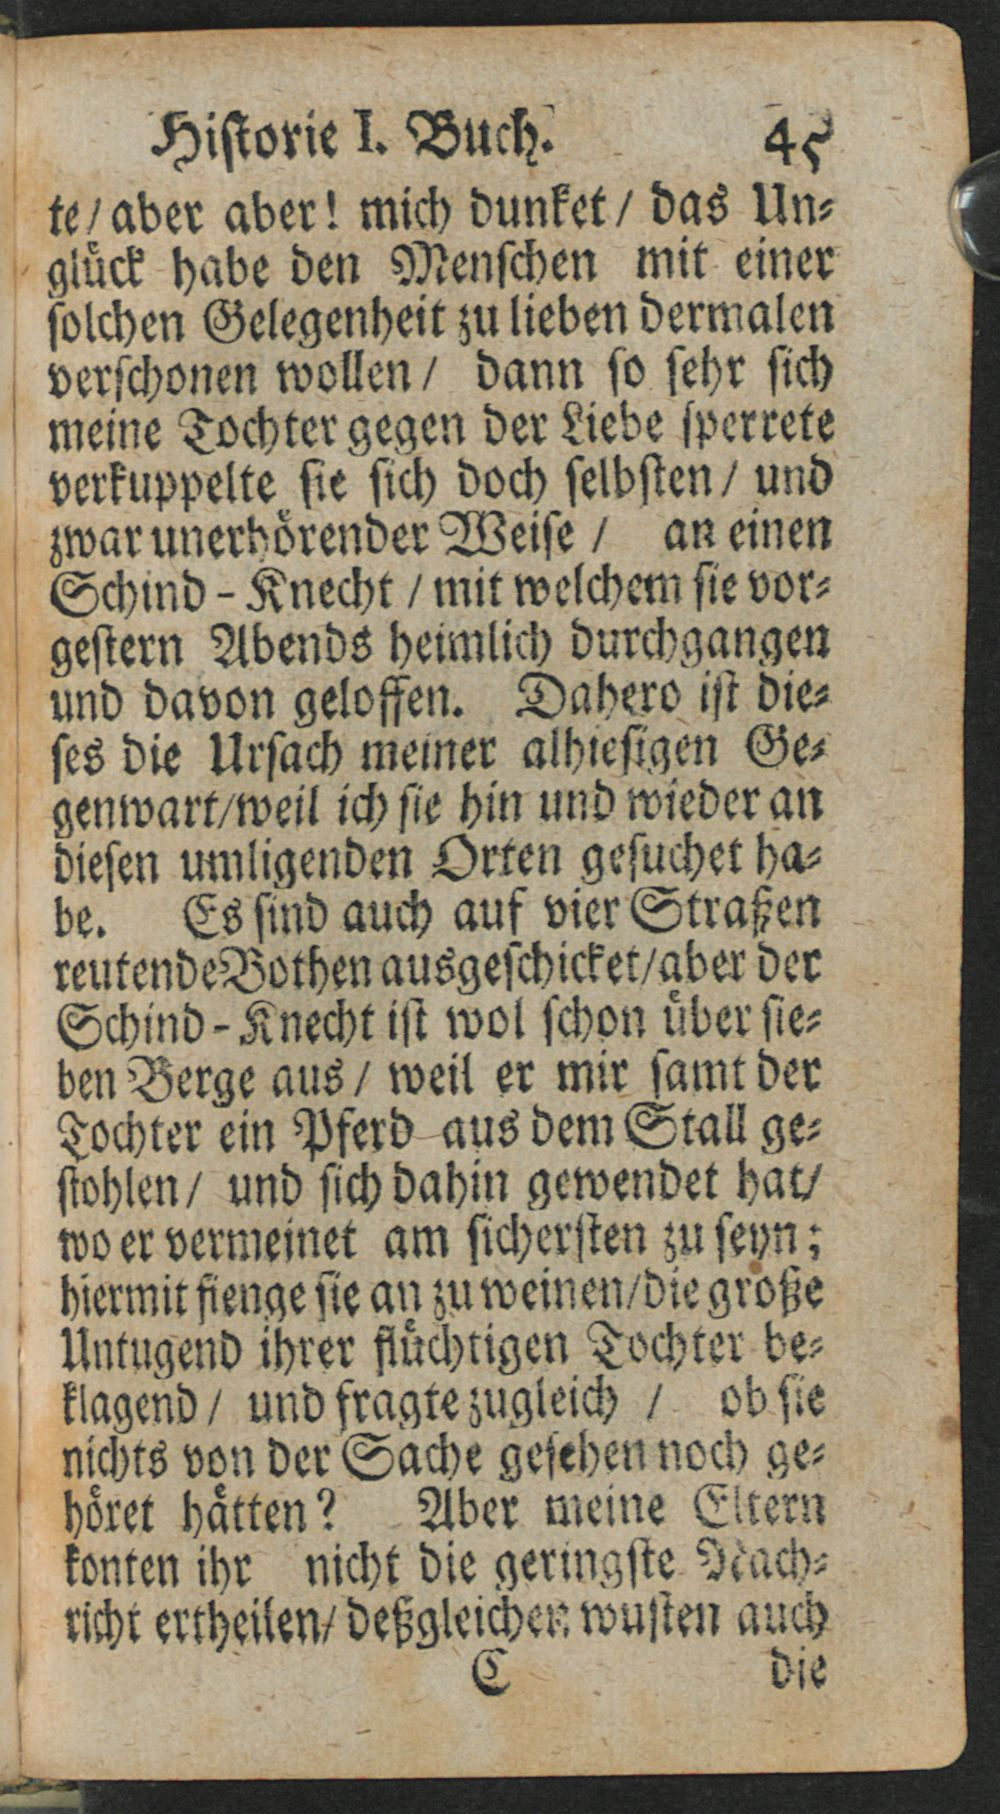 Historie I. Buch. 45
te/ aber aber! mich dunket/ das Un⸗
gluͤck habe den Menschen mit einer
solchen Gelegenheit zu lieben dermalen
verschonen wollen/ dann so sehr sich
meine Tochter gegen der Liebe sperrete
verkuppelte sie sich doch selbsten/ und
zwar unerhoͤrender Weise / an einen
Schind-Knecht / mit welchem sie vor⸗
gestern Abends heimlich durchgangen
und davon geloffen. Dahero ist die⸗
ses die Ursach meiner alhiesigen Ge⸗
genwart/weil ich sie hin und wieder an
diesen umligenden Orten gesuchet ha⸗
be. Es sind auch auf vier Straßen
reutende Bothen ausgeschicket/aber der
Schind-Knecht ist wol schon uͤber sie⸗
ben Berge aus/ weil er mir samt der
Tochter ein Pferd aus dem Stall ge⸗
stohlen/ und sich dahin gewendet hat/
wo er vermeinet am sichersten zu seyn;
hiermit fienge sie an zu weinen/die große
Untugend ihrer fluͤchtigen Tochter be⸗
klagend/ und fragte zugleich / ob sie
nichts von der Sache gesehen noch ge⸗
hoͤret haͤtten? Aber meine Eltern
konten ihr nicht die geringste Nach⸗
richt ertheilen/ deßgleichen wusten auch
C die